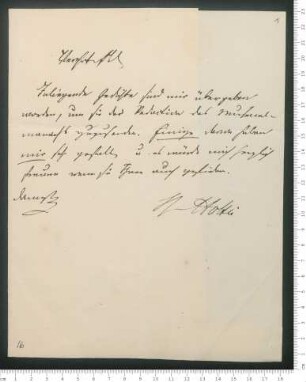 1
Verehrtester
Inliegende Gedichte sind mir übergeben
worden, um sie der Redaction des Musenal-
manachs zuzusenden. Einige davon haben
mir sehr gefallen, u. es würde mich herzlich
freuen wenn sie Ihnen auch gefielen.
16